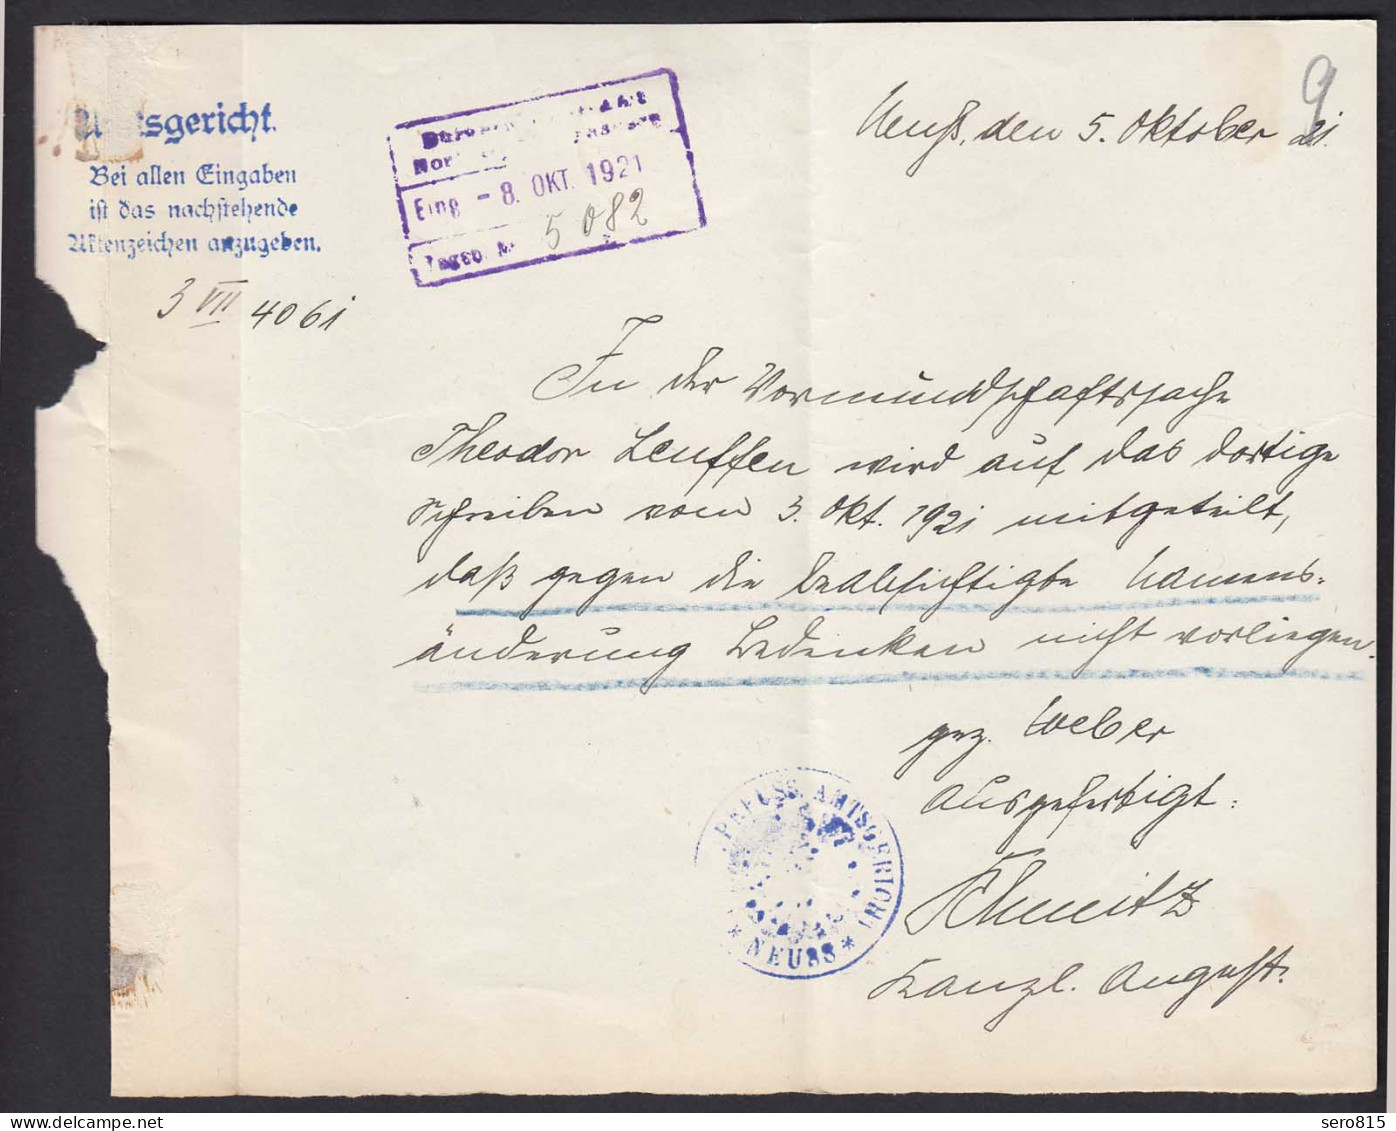 Amtsgericht.
Bei allen Eingaben
ist das nachstehende
Aktenzeichen anzugeben.
3 VII 4061
Eing - 8. OKT. 1921
Tageb. №
5082
9
Neuß, den 5. Oktober 21.
In der Vormundschaftssache
Theodor Leuffen wird auf das dortige
Schreiben vom 3. Okt. 1921 mitgeteilt,
daß gegen die beabsichtigte Namens-
änderung Bedenken nicht vorliegen.
gez. Weber
Ausgefertigt:
Schmitz
Kanzl. Angest.
PREUSS. AMTSGERICHT
* NEUSS *
sero815